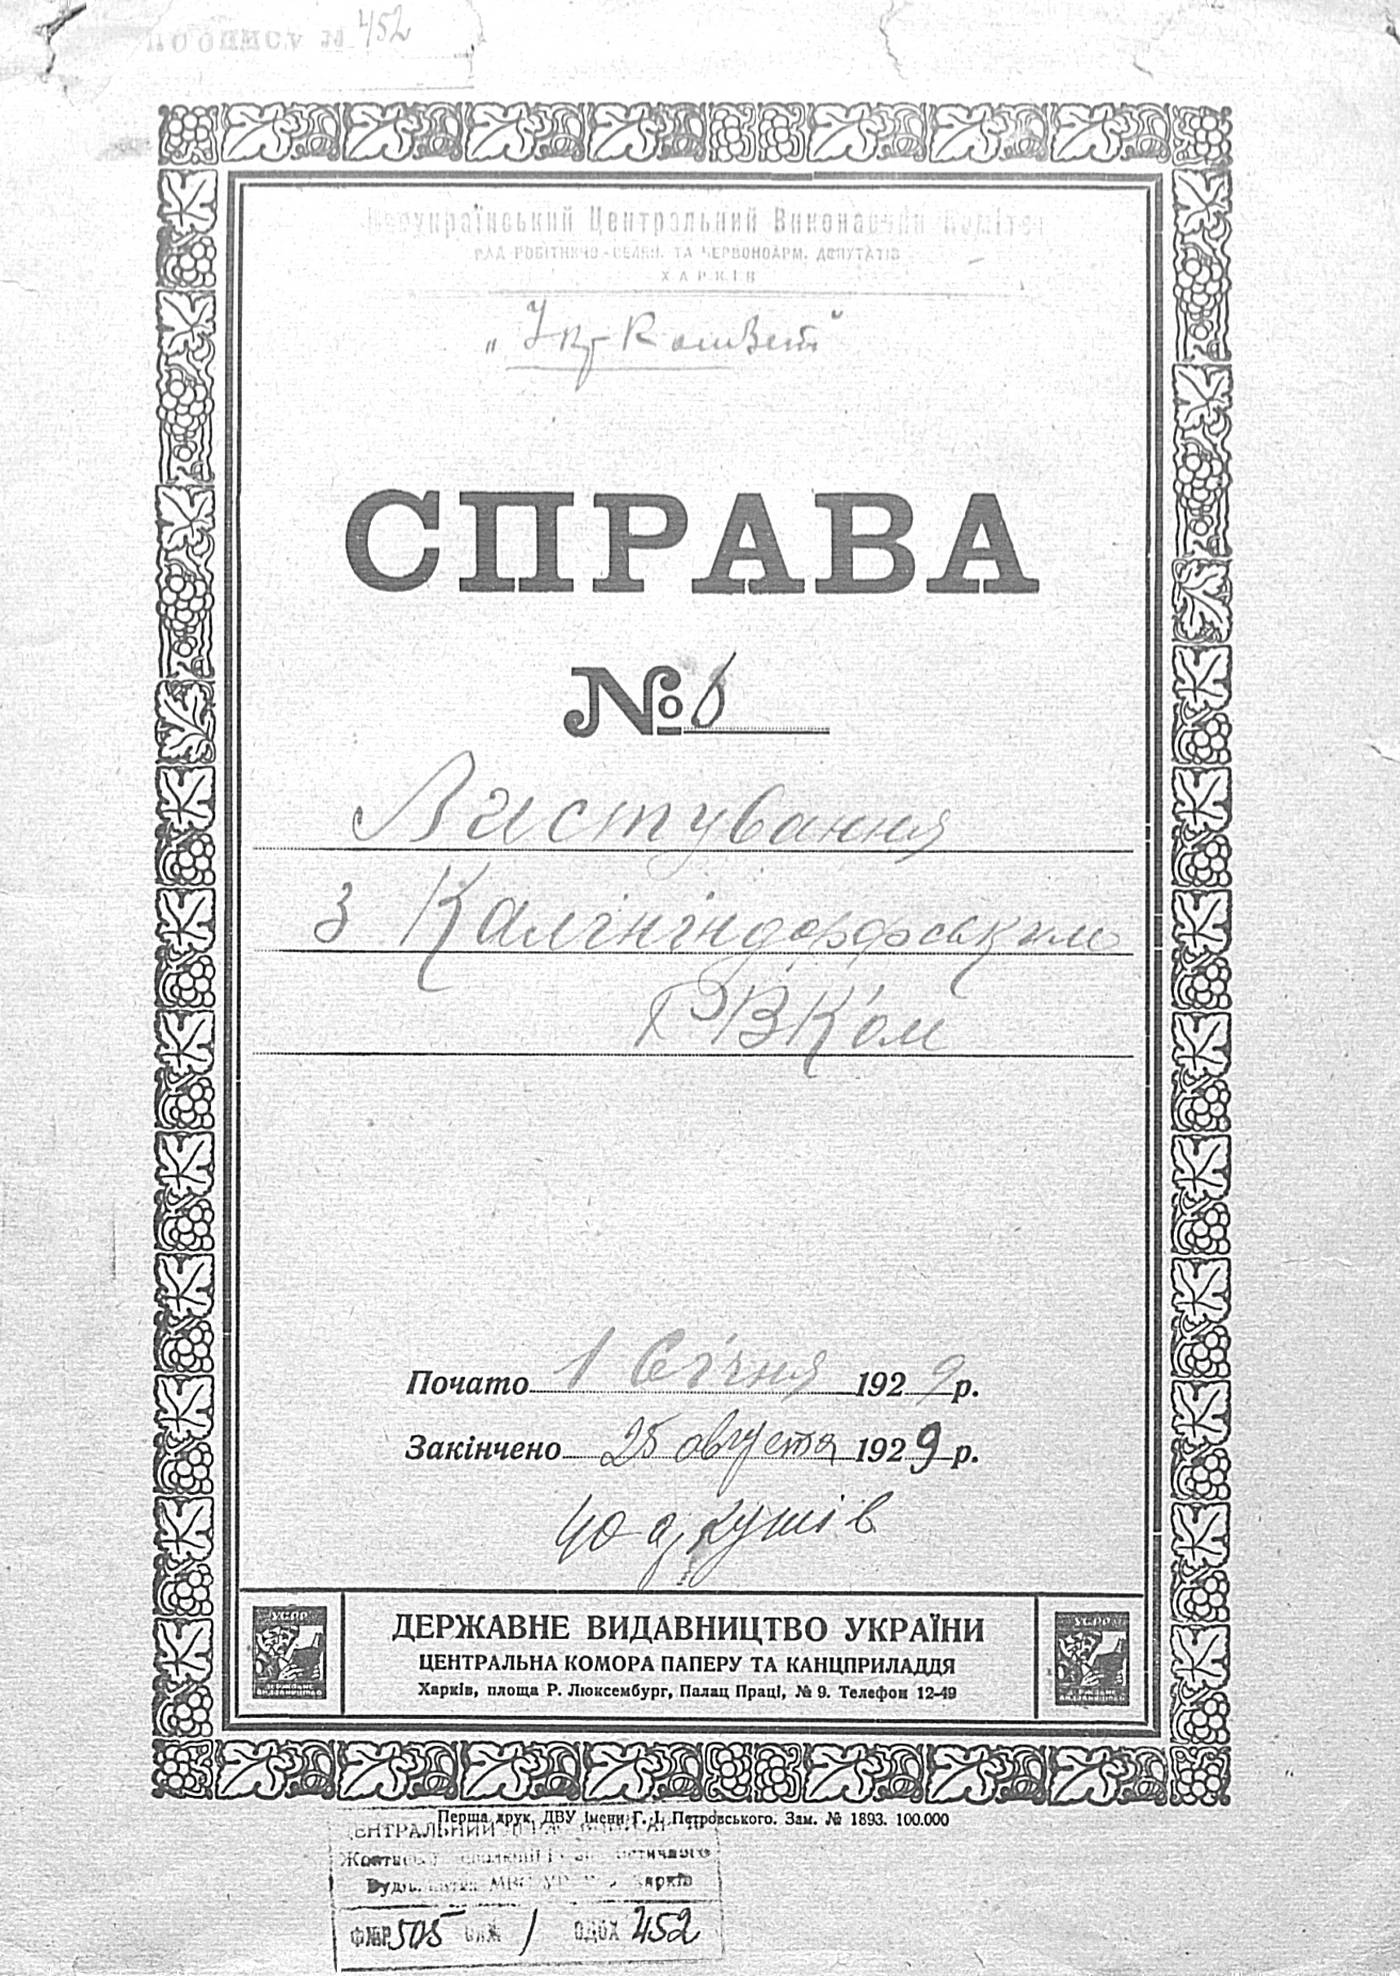 по опису № 452
Всеукраїнський Центральний Виконавчий Комітет
РАД РОБІТНИЧО-СЕЛЯН. ТА ЧЕРВОНОАРМ. ДЕПУТАТІВ
ХАРКІВ
"Укр-Комзет"
СПРАВА
№ 8
Листування
з Калінінdорфським
РВК'ом
Почато 1 Січня 1929 р.
Закінчено 25 августа 1929 р.
40 аркушів
УСРР
УСРР
ДЕРЖАВНЕ ВИДАВНИЦТВО УКРАЇНИ
ЦЕНТРАЛЬНА КОМОРА ПАПЕРУ ТА КАНЦПРИЛАДДЯ
Харків, площа Р. Люксембург, Палац Праці, № 9. Телефон 12-49
Перша друк. ДВУ імени Г. І. Петровського. Зам. № 1893. 100.000
ЦЕНТРАЛЬНИЙ
Жовтневої
Харків
505 1 452